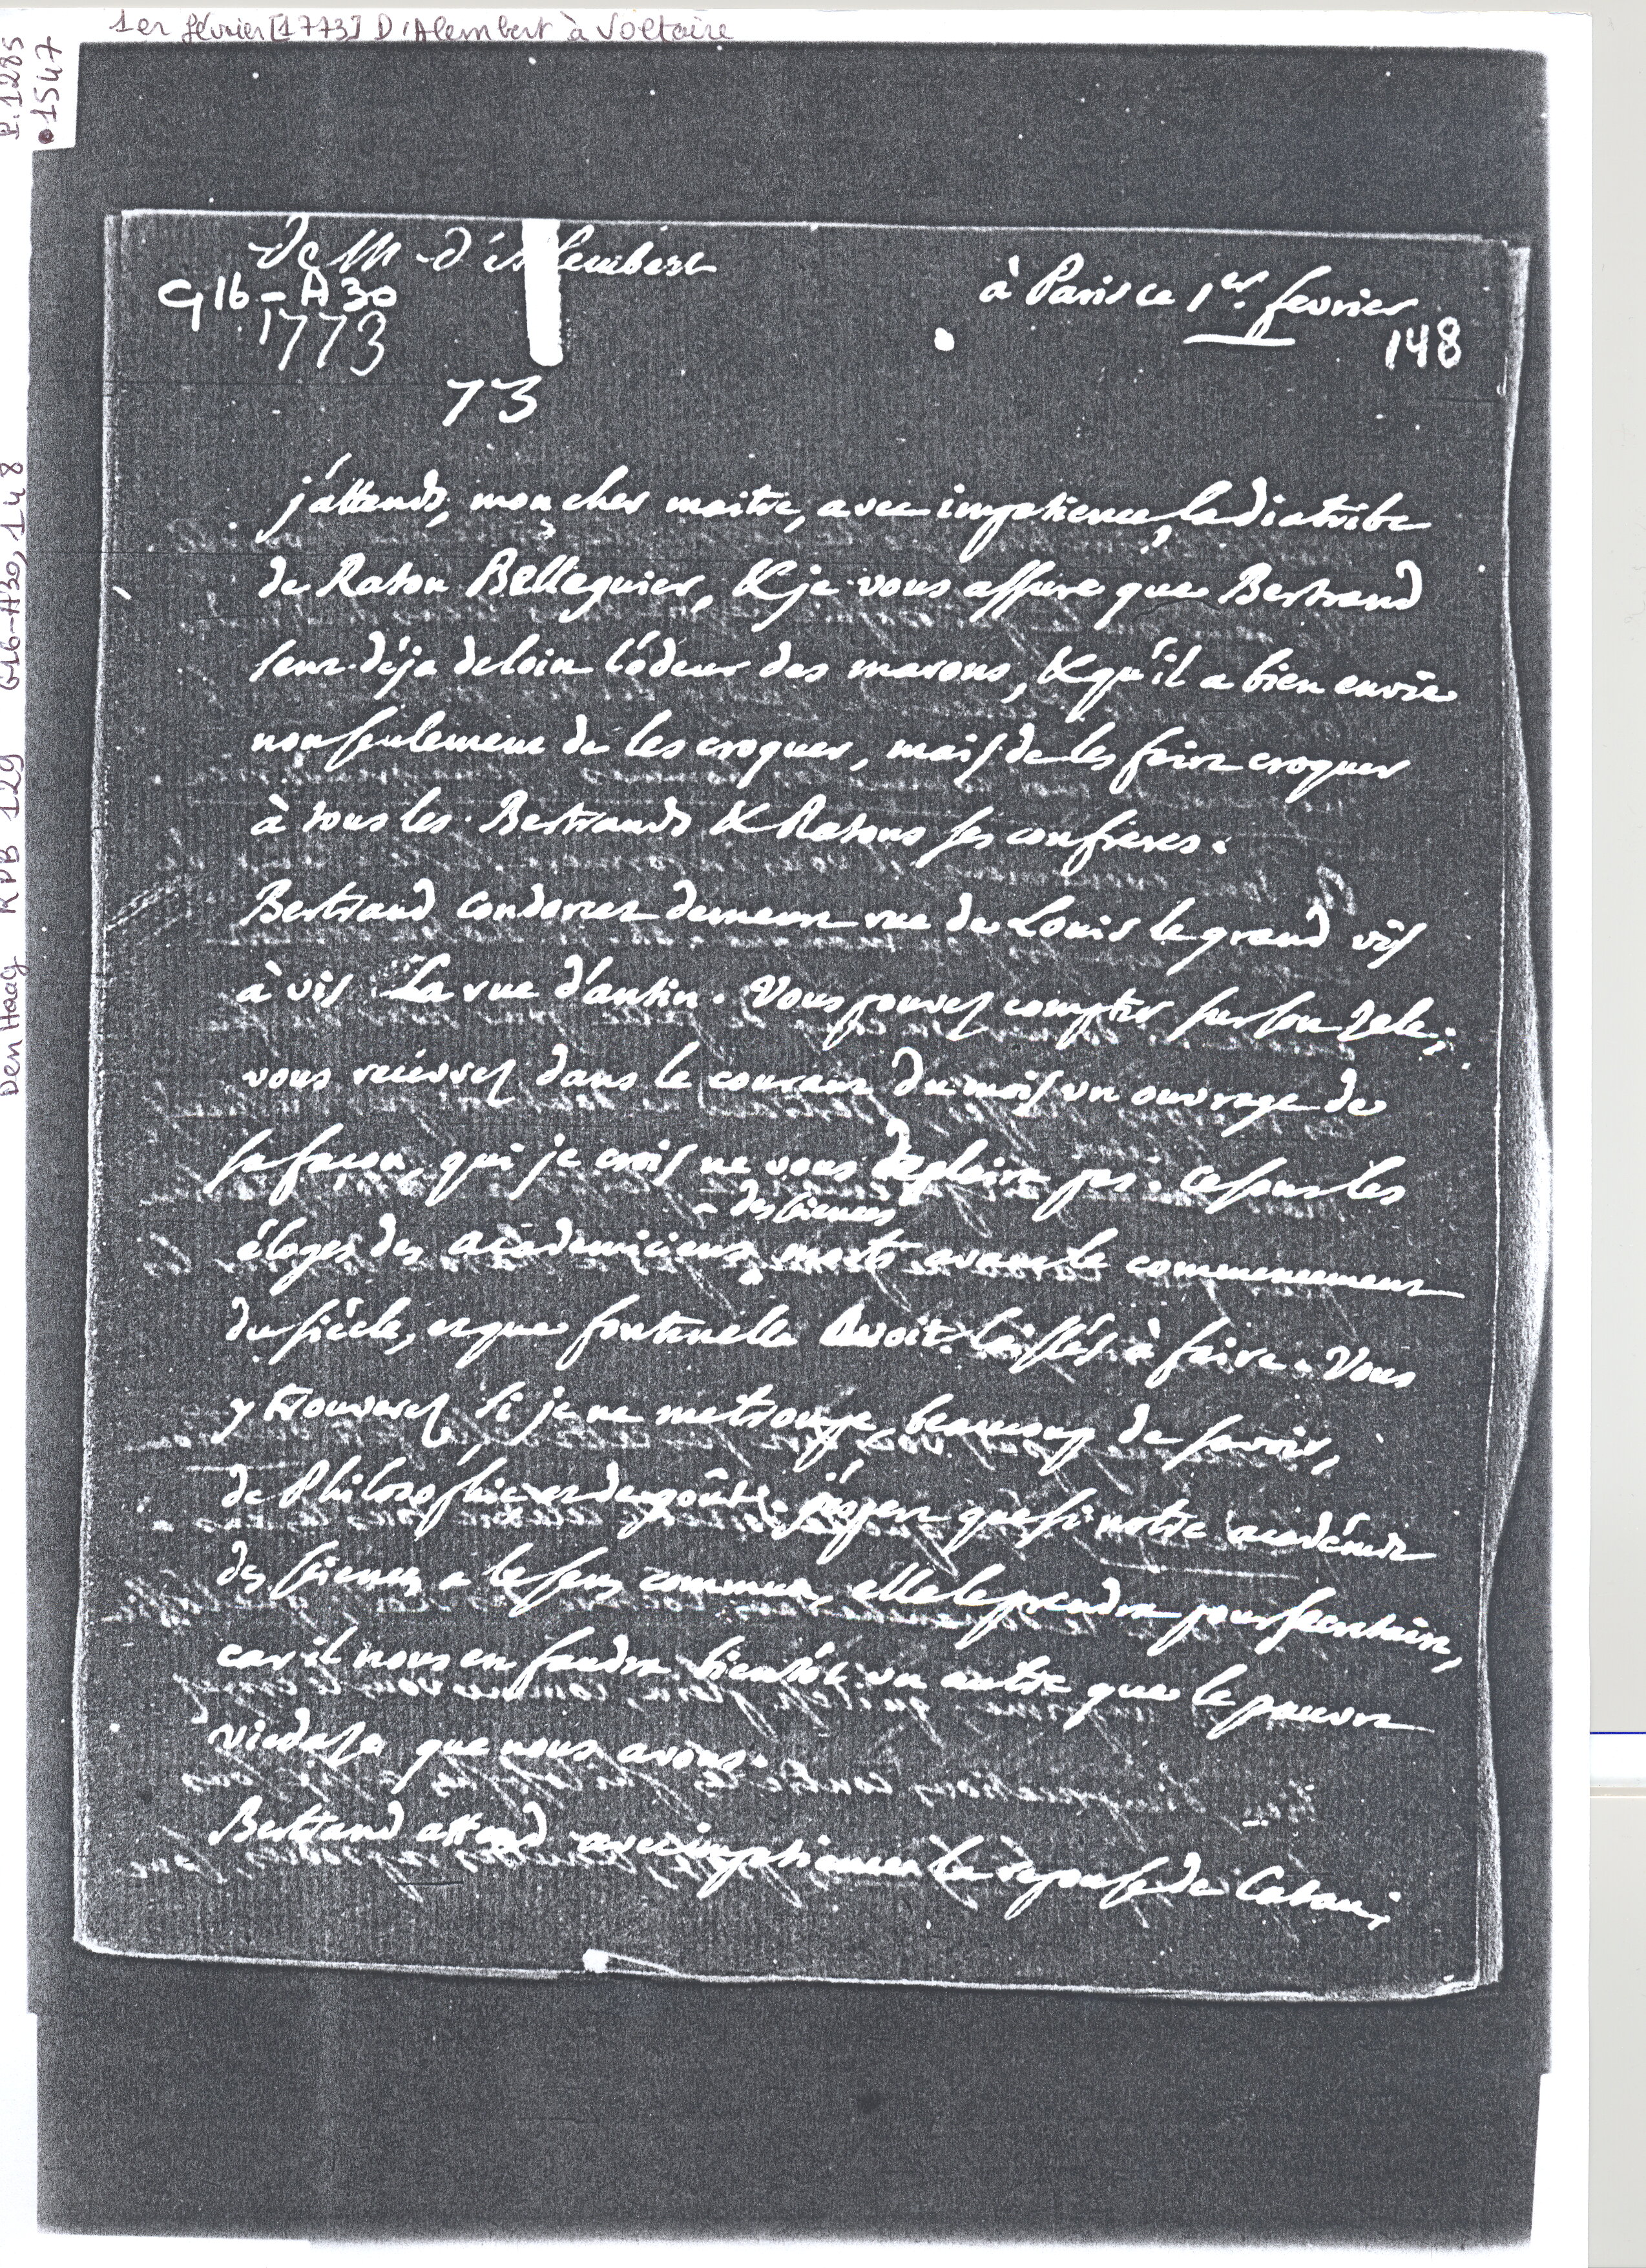 1er février [1773] D'Alembert à Voltaire
P.1285
•1547
Den Haag RPB 129 G16-A30, 148
De M. d'alembert
G16-A30
1773
73
à Paris ce 1er. fevrier
148
j'attends, mon cher maitre, avec impatience, la diatribe
de Raton Belleguier, & je vous assure que Bertrand
sent déja de loin l'odeur des marons, & qu'il a bien envie
non seulement de les croquer, mais de les faire croquer
à tous les Bertrands & Ratons ses confreres.
Bertrand Condorcet demeure rue de Louis le grand vis
à vis la rue d'antin. Vous pouvez compter sur son zele;
vous recevrez dans le courant du mois un ouvrage de
sa façon, qui je crois ne vous deplaira pas. ce sont les
des sciences
éloges des académiciens morts avant le commencement
du siècle, et que fontenelle avoit laissés à faire. Vous
y trouverez, si je ne me trompe, beaucoup de savoir,
de Philosophie et de goût. j'espere que si notre académie
des sciences a le sens commun, elle le prendra pour secretaire,
car il nous en faudra bientôt un autre que le pauvre
viedase que nous avons.
Bertrand attend avec impatience la reponse de